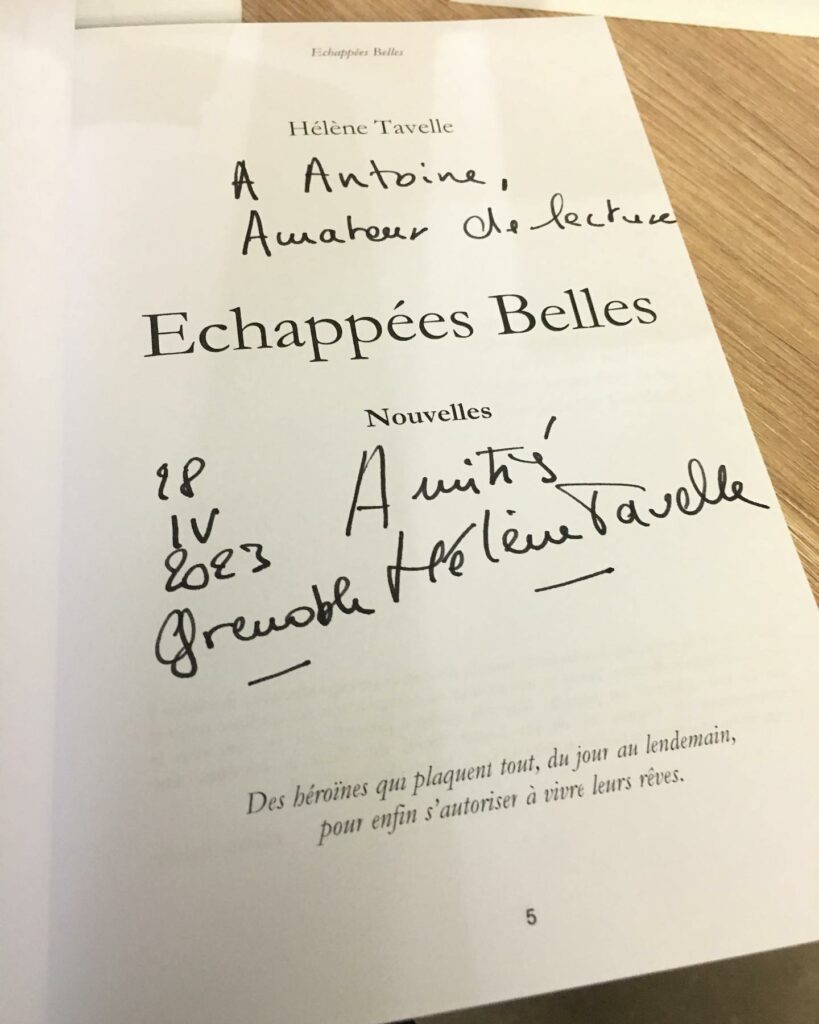 Echappées Belles
Hélène Tavelle
A Antoine,
Amateur de lecture
Echappées Belles
Nouvelles
28
IV
2023
Amitiés
Grenoble Hélène Tavelle
Des héroïnes qui plaquent tout, du jour au lendemain,
pour enfin s'autoriser à vivre leurs rêves.
5